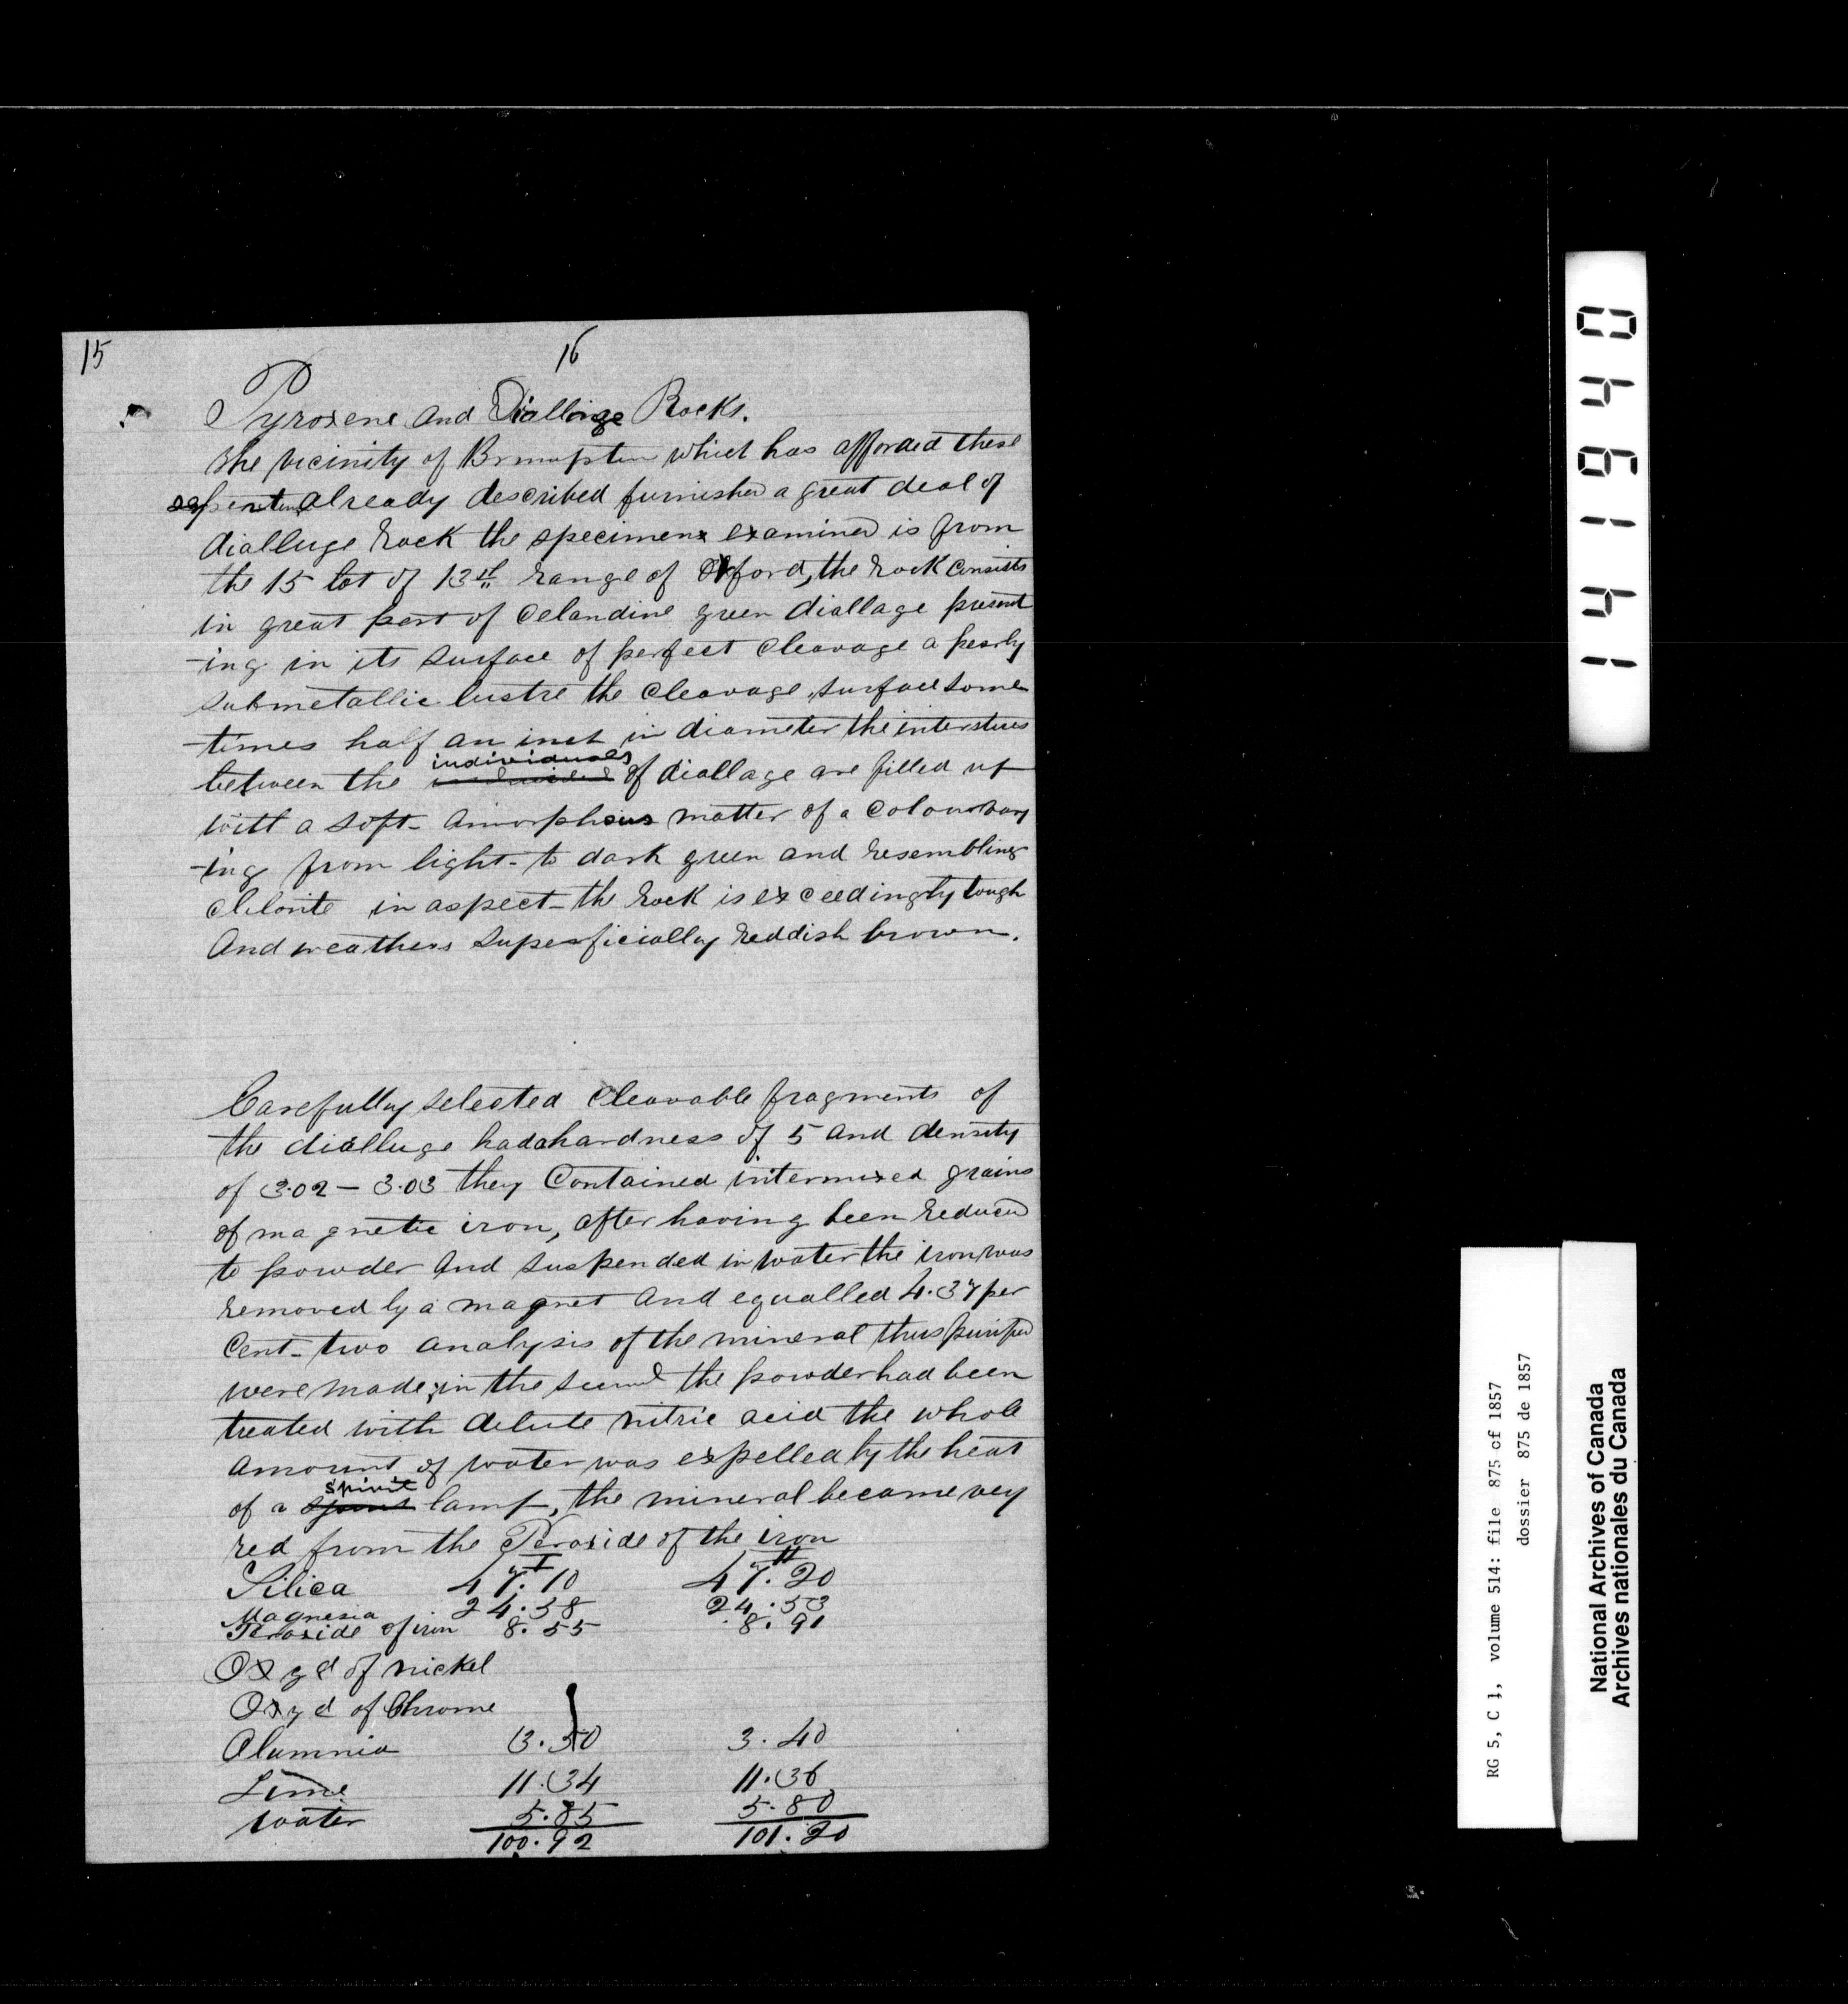 15
16
Pyroxene and Diallage Rocks.
The vicinity of Brompton which has afforded these
already described furnished a great deal of
dialluge Rock the specimen examined is from
the 15 lot of 13th range of Oxford, the Rock Consists
in great part of Celandine green diallage present
-ing in its surface of perfect Cleavage a pearly
submetallic lustre the Cleavage surface some
-times half an inch in diameter the interstices
individuals
between the of diallage are filled up
with a soft- amorphous matter of a Colour vary
-ing from light- to dark green and resembling
Chlorite in aspect- the Rock is exceedingly tough
And weathers superficially reddish brown.
Carefully selected Cleavable fragments of
the dialluge had a hardness of 5 and density
of 3.02 - 3.03 they Contained intermixed grains
of magnetic iron, after having been reduced
to powder and suspended in water the iron was
removed by a magnet and equalled 4.37 per
Cent- two analysis of the mineral thus purified
were made, in the second the powder had been
treated with delute nitric acid the whole
amount of water was expelled by the heat
spirit
of a lamp, the mineral became very
red from the Peroxide of the iron
I II
Silica 47.10 47.20
Magnesia 24.58 24.53
Peroxide of iron 8.55 8.91
Oxyd of nickel
Oxyd of Chrome
Alumnia 3.50 3.40
Lime 11.34 11.36
water 5.85 5.80
100.92 101.20
141940
RG 5, C 1, volume 514: file 875 of 1857
dossier 875 de 1857
National Archives of Canada
Archives nationales du Canada